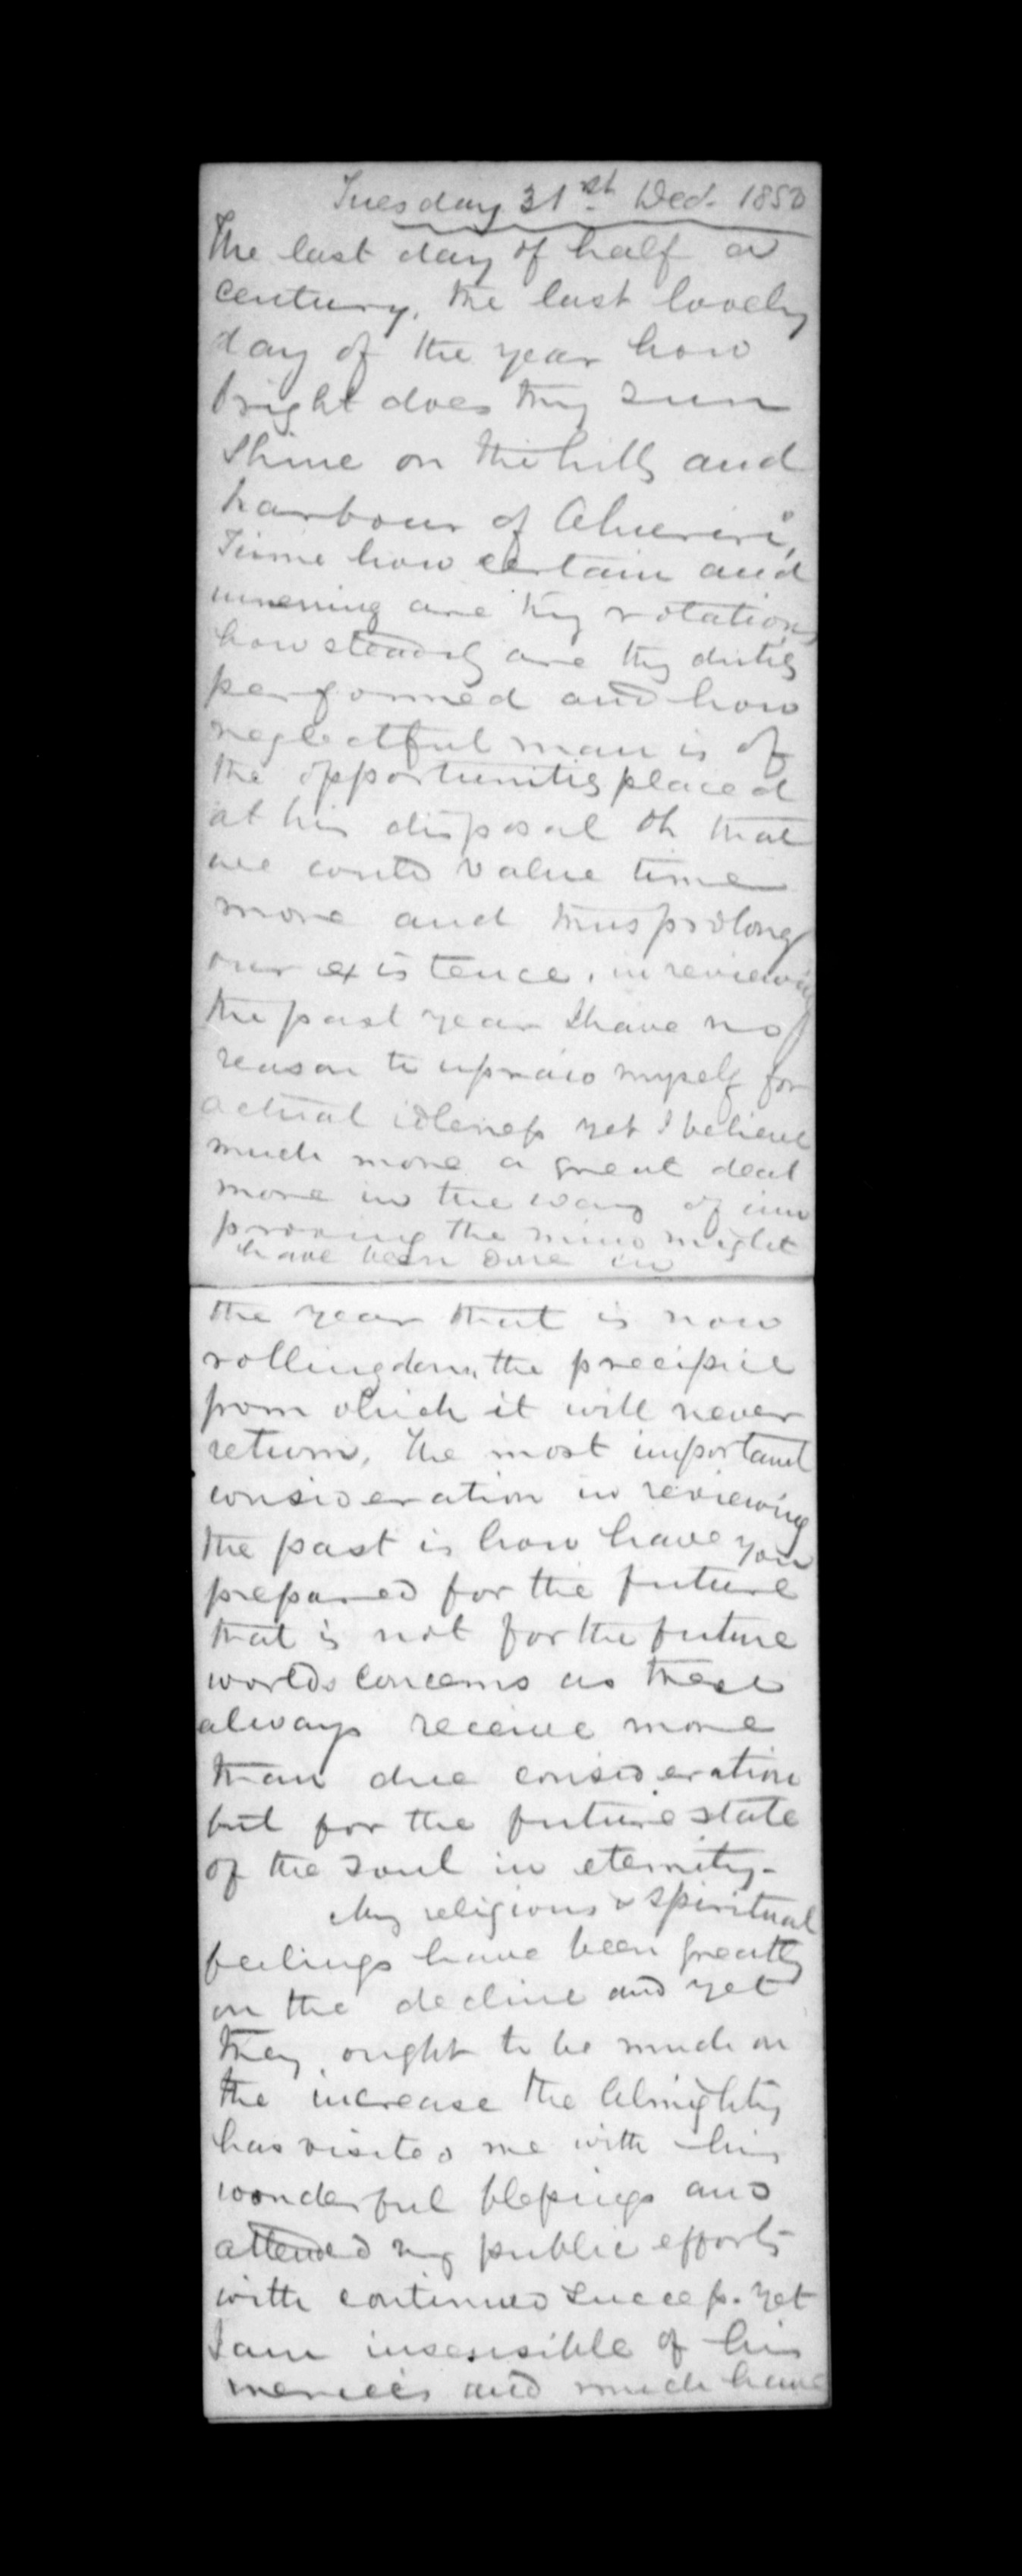 Tuesday 31st Dec. 1850
The last day of half a
century, the last lovely
day of the year how
bright does thy sun
shine on the hills and
harbour of Ahuriri,
Time how certain and
unerring are thy rotations
how steadily are thy duties
performed and how
neglectful man is of
the opportunities placed
at his disposal Oh that
we could value time
more and thus prolong
our existence. in reviewing
the past year I have no
reason to upraid myself for
actual idleness yet I believe
much more a great deal
more in the way of im
proving the mind might
have been done in
the year that is now
rolling down the precipice
from which it will never
return. The most important
consideration in reviewing
the past is how have you
prepared for the future
that is not for the future
worlds concerns as these
always receive more
than due consideration
but for the future state
of the soul in eternity -
My religious & spiritual
feelings have been greatly
on the decline and yet
they ought to be much on
the increase the Almighty
has visited me with his
wonderful blessings and
attended my public efforts
with continued success. yet
I am insensible of his
mercies and much have